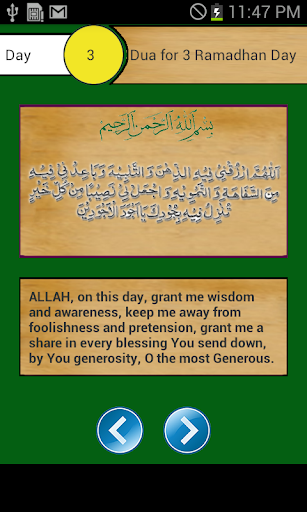 11:47 PM
Day 3 Dua for 3 Ramadhan Day
بِسْمِ اللهِ الرَّحْمنِ الرَّحِيمِ
اَللّهُمَّ ارْزُقْني فيهِ الذِّهْنَ وَ التَّنْبيهَ وَ باعِدْني فيهِ
مِنَ السَّفاهَةِ وَ التَّمْويهِ وَ اجْعَلْ لي نَصيبًا مِنْ كُلِّ خَيْرٍ
تُنْزِلُ فيهِ بِجُودِكَ يا اَجْوَدَ الْاَجْوَدينَ
ALLAH, on this day, grant me wisdom
and awareness, keep me away from
foolishness and pretension, grant me a
share in every blessing You send down,
by You generosity, O the most Generous.